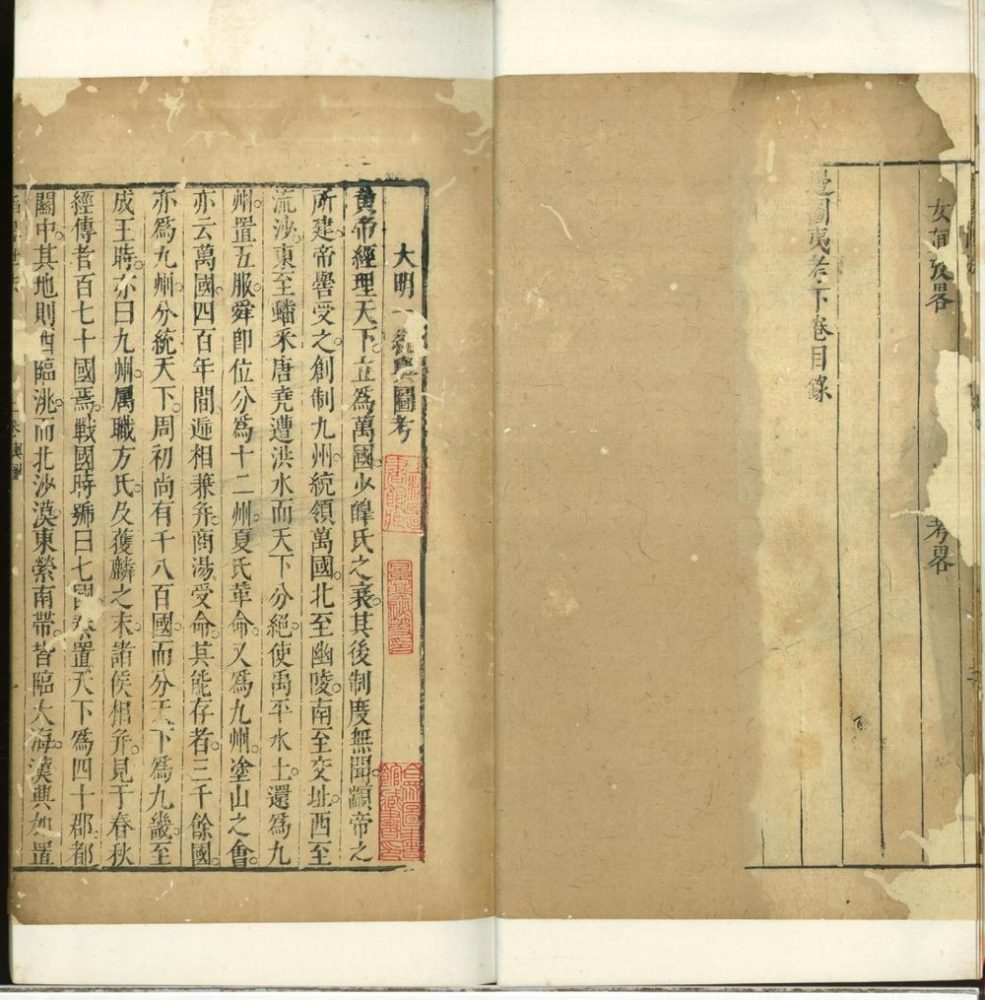 女直攷畧
考畧
邊圉夷考下卷目錄
大明一統輿圖考
黄帝經理天下立爲萬國少皥氏之衰其後制度無聞顓帝之
所建帝嚳受之創制九州統領萬國北至幽陵南至交址西至
流沙東至蟠釆唐堯遭洪水而天下分絕使禹平水土還爲九
州置五服舜卽位分爲十二州夏氏革命又爲九州塗山之會
亦云萬國四百年間遞相兼并商湯受命其能存者三千餘國
亦爲九州分統天下周初尚有千八百國而分天下爲九畿至
成王時亦曰九州属職方氏及獲麟之末諸侯相并見于春秋
經傳者百七十國焉戰國時號曰七國秦置天下爲四十郡都
關中其地則西臨洮而北沙漠東縈南帶皆臨大海漢興加置